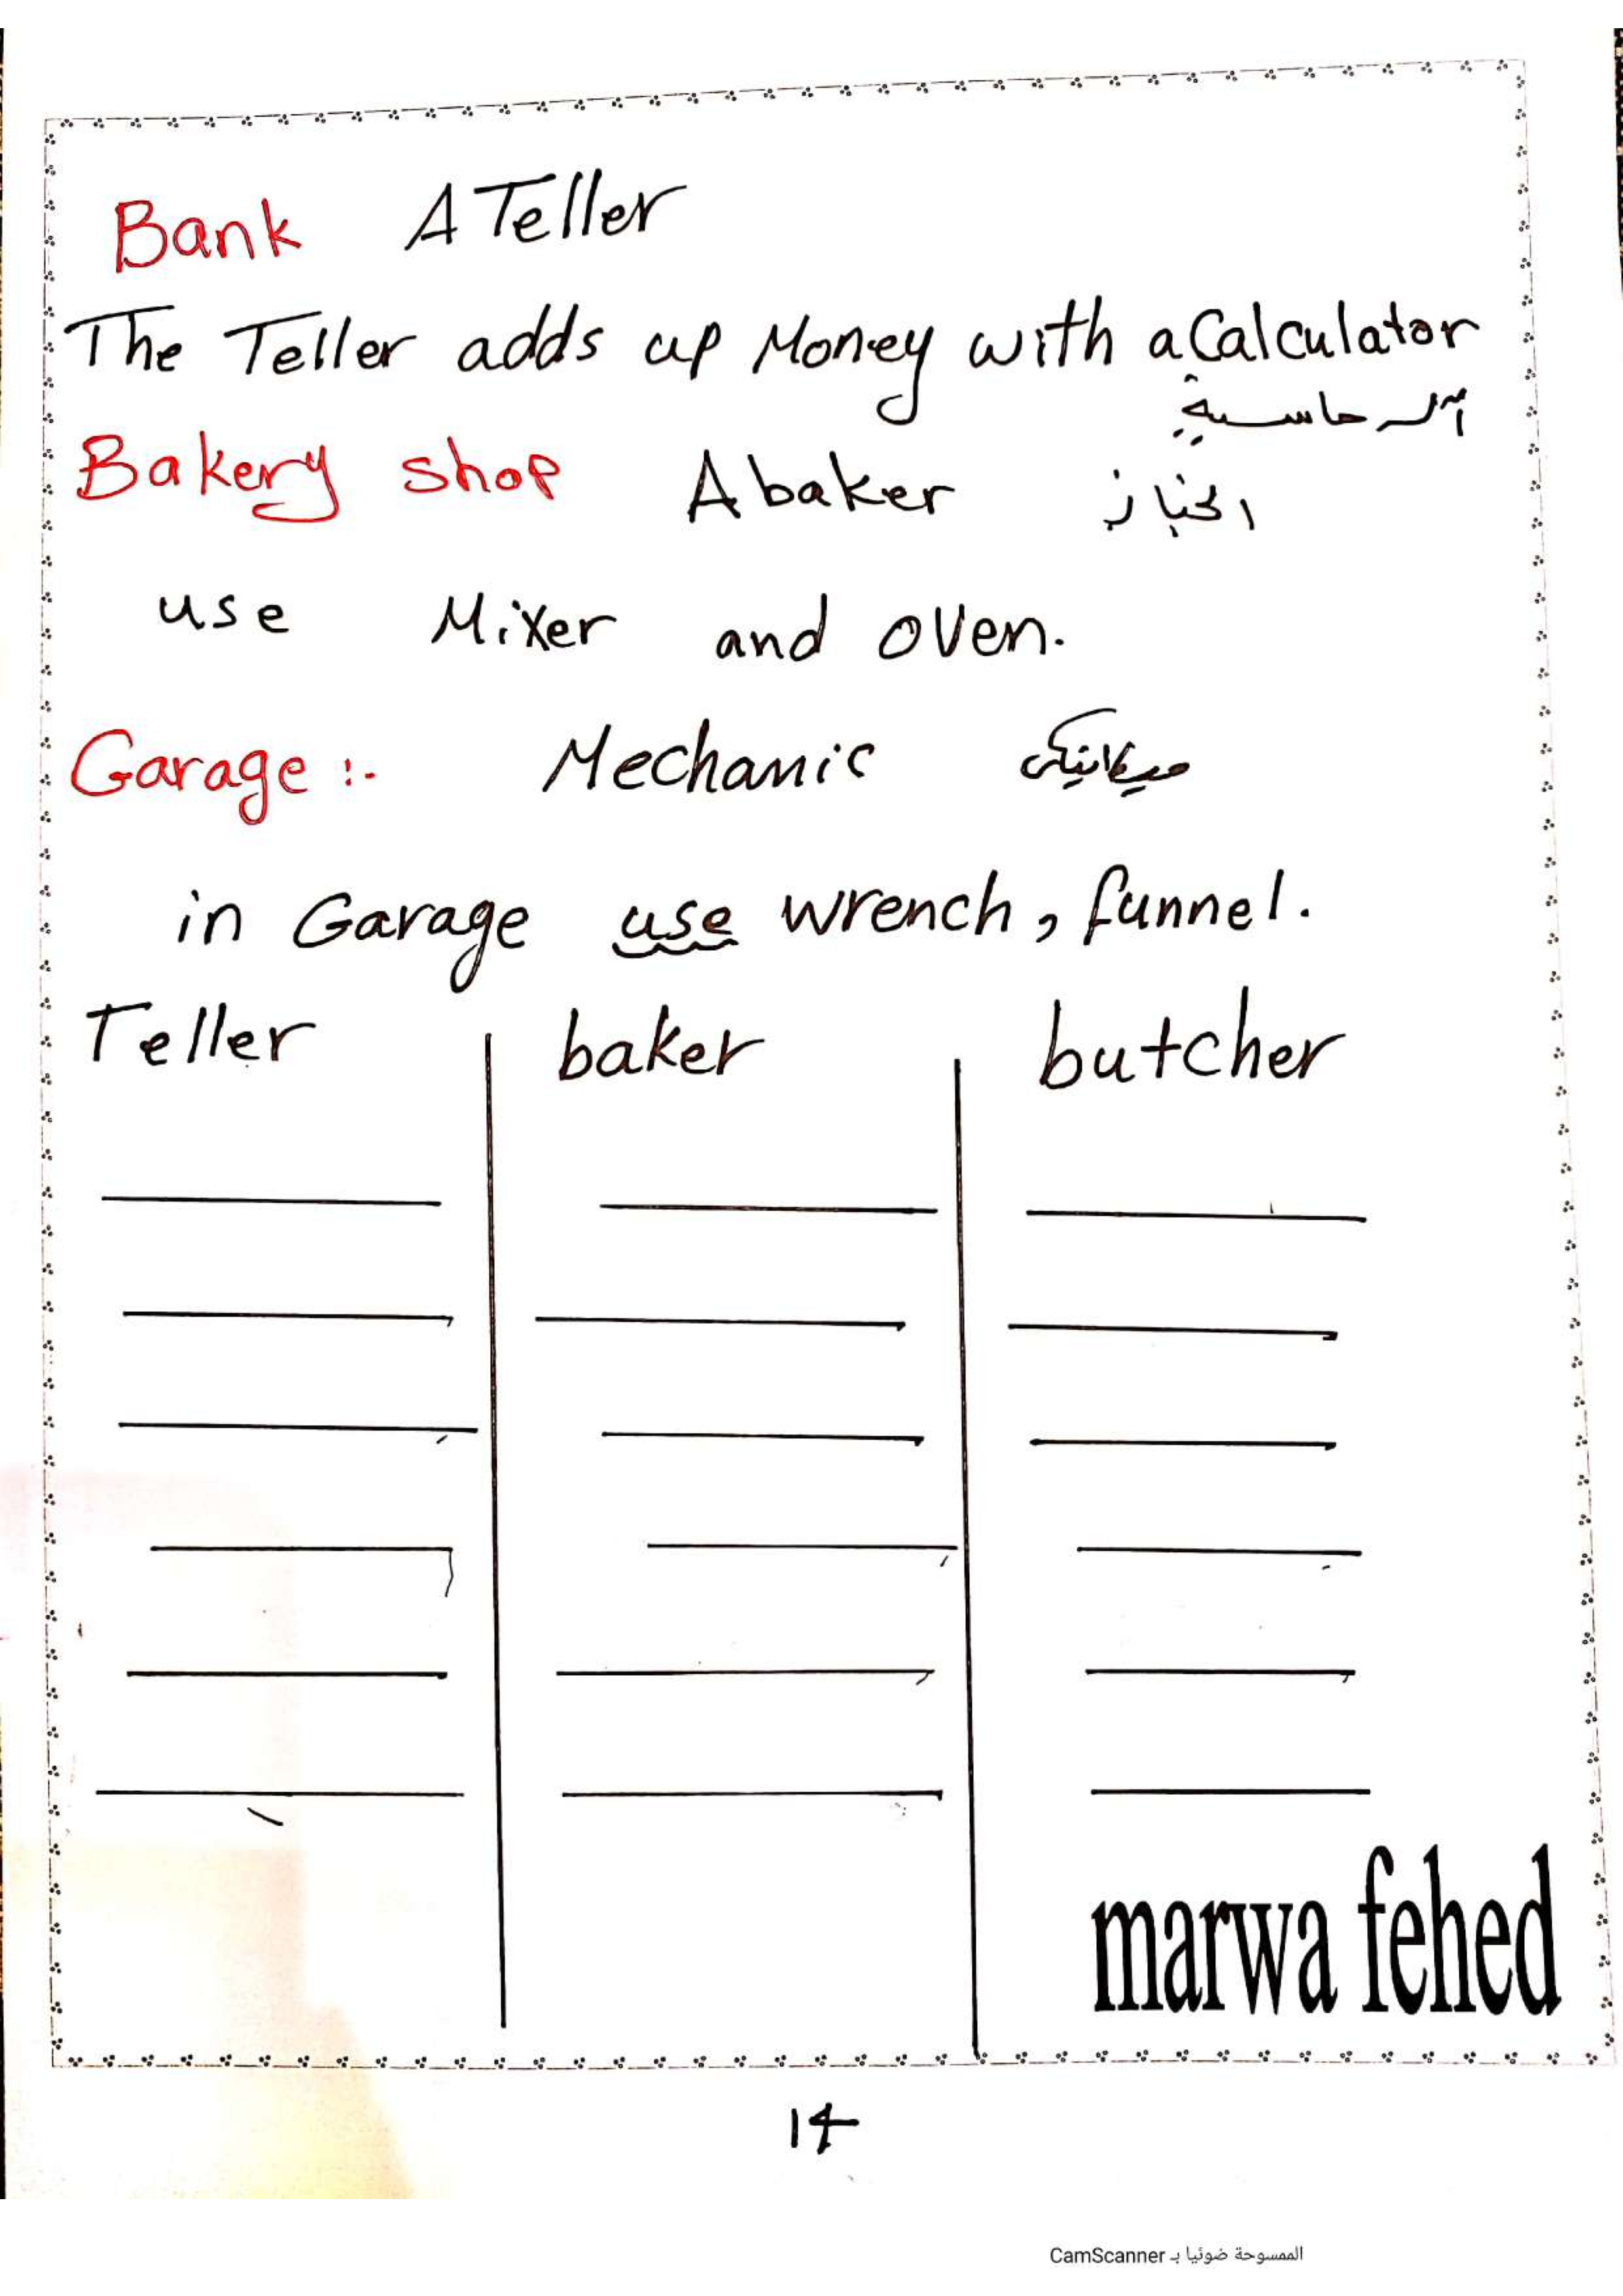 Bank A Teller
The Teller adds up Money with a Calculator
آلـه حاسبة
Bakery shop A baker الخباز
use Mixer and oven.
Garage :- Mechanic ميكانيكي
in Garage use wrench, funnel.
Teller baker butcher
marwa fehed
14
الممسوحة ضوئيا بـ CamScanner